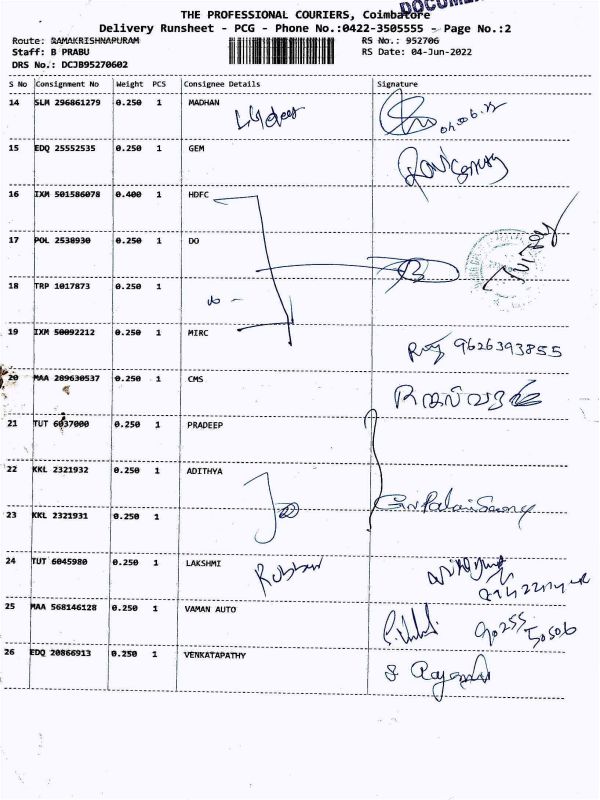 DOCUMEN
THE PROFESSIONAL COURIERS, Coimbatore
Delivery Runsheet - PCG - Phone No.:0422-3505555 - Page No.:2
Route: RAMAKRISHNAPURAM RS No.: 952706
Staff: B PRABU RS Date: 04-Jun-2022
DRS No.: DCJB95270602
S No Consignment No Weight PCS Consignee Details Signature
14 SLM 296861279 0.250 1 MADHAN
15 EDQ 25552535 0.250 1 GEM
16 IXM 501586078 0.400 1 HDFC
17 POL 2538930 0.250 1 DO
18 TRP 1017873 0.250 1
19 IXM 50092212 0.250 1 MIRC 9626393855
20 MAA 289630537 0.250 1 CMS
21 TUT 6037000 0.250 1 PRADEEP
22 KKL 2321932 0.250 1 ADITHYA
23 KKL 2321931 0.250 1
24 TUT 6045980 0.250 1 LAKSHMI
25 MAA 568146128 0.250 1 VAMAN AUTO 90255
50506
26 EDQ 20866913 0.250 1 VENKATAPATHY